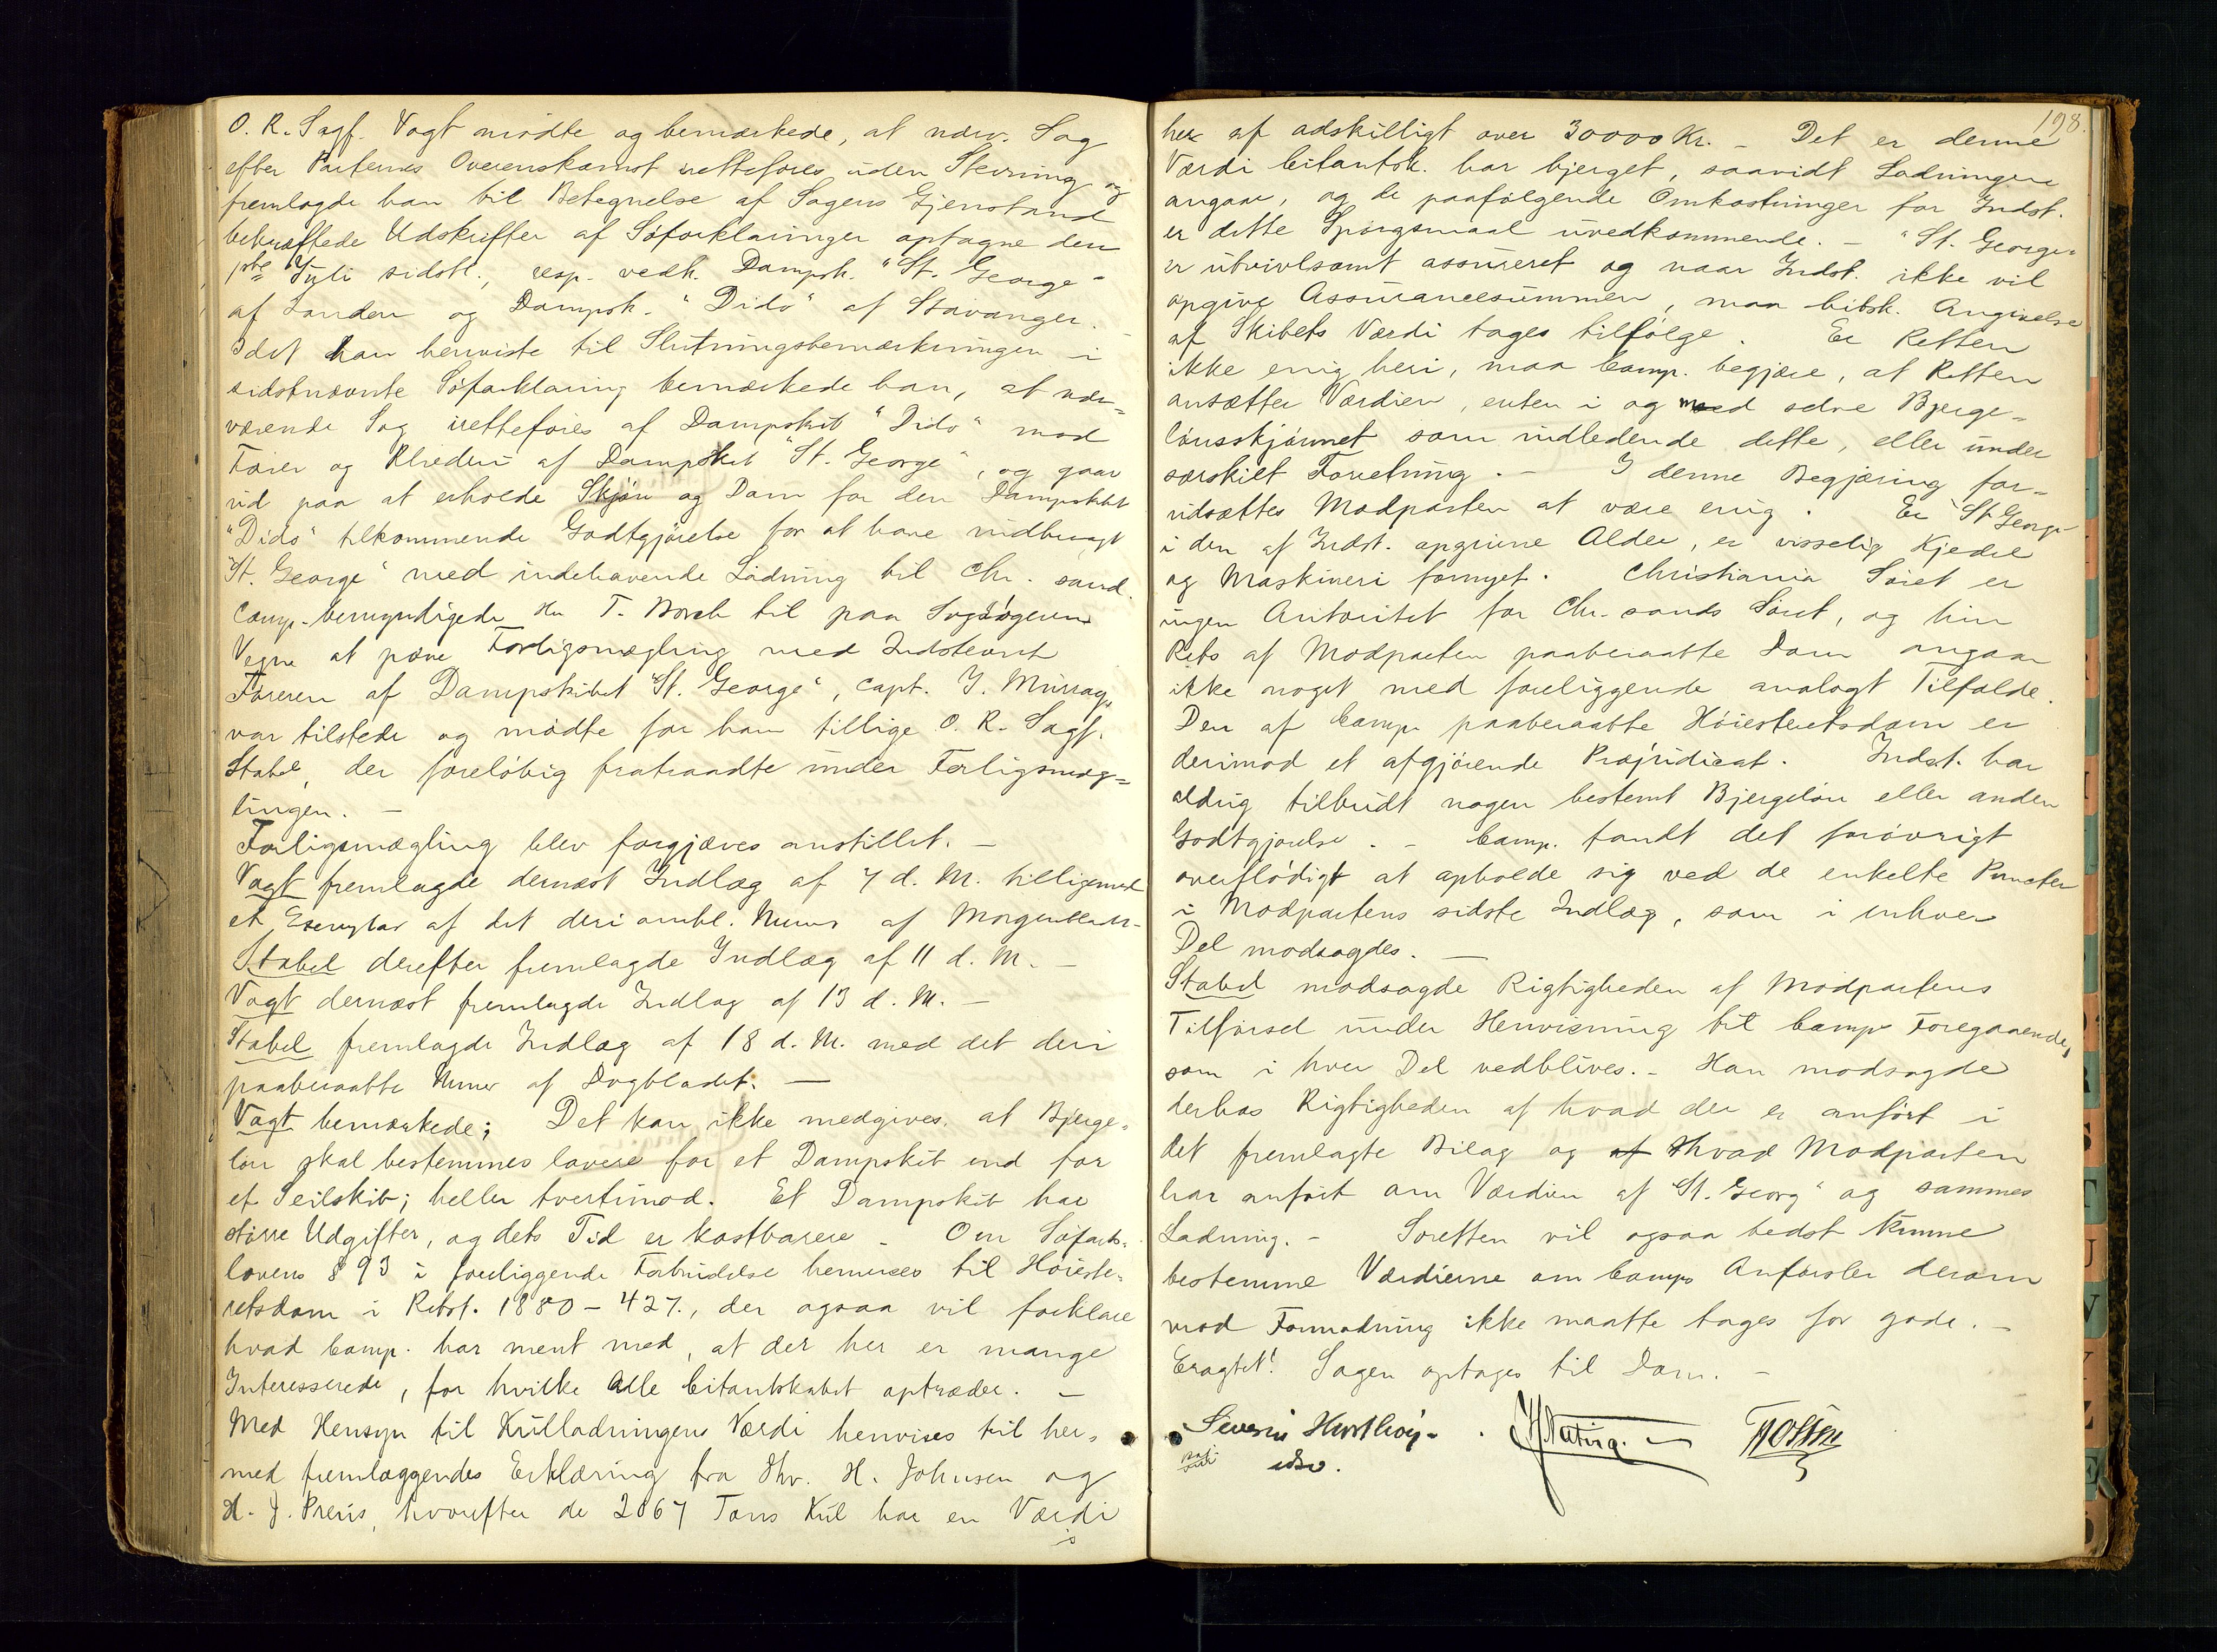 O. R. Sagf. Vogt mödte og bemærkede, at nærv. Sag
efter Parternes Overenskomst rettefores uden Stevning og
fremlagde han til Betegnelse af Sagens Gjenstand
bekræftede Udskrifter af Söforklaringer optagne den
1ste Juli sidstl., resp. vedk. Dampsk. "St. George"
af London og Dampsk. "Dido" af Stavanger. —
Idet han henviste til Slutningsbemærkningen i
sidstnævnte Söforklaring bemærkede han, at nær-
værende Sag iretteföres af Dampskib "Dido" mod
Förer og Rhederi af Dampskibet "St. George", og gaar
ud paa at erholde Skjön og Dom for den Dampskibet
"Dido" tilkommende Godtgjörelse for at have indbragt
"St. George" med indehavende Ladning til Chr. sand.
Comp. bemyndigede Hr T. Borch til paa Sagsögerens
Vegne at pröve Forligsmægling med Indstevnte
Föreren af Dampskibet "St. George", Capt. J. Murray,
var tilstede og mödte for ham tillige O. R. Sagf.
Stabel, der foreløbig fratraadte under Forligsmæg-
lingen. —
Forligsmægling blev forgjæves anstillet. —
Vogt fremlagde dernæst Indlæg af 7 d. M. tilligemed
et Exemplar af det deri omhl. Numer af Morgenbladet.
Stabel derefter fremlagde Indlæg af 11 d. M. —
Vogt dernæst fremlagde Indlæg af 13 d. M. —
Stabel fremlagde Indlæg af 18 d. M. med det deri
paaberaabte Numer af Dagbladet. —
Vogt bemærkede; Det kan ikke medgives, at Bjerge-
lön skal bestemmes lavere for et Dampskib end for
et Seilskib; heller tvertimod. Et Dampskib har
större Udgifter, og dets Tid er kostbarere. Om Söfarts-
lovens § 93 i foreliggende Forbindelse henvises til Höieste-
retsdom i Retst. 1880 - 427., der ogsaa vil forklare
hvad Comp. har ment med, at der her er mange
Interesserede, for hvilke Alle Citantskabet optræder. —
Med Hensyn til Kulladningens Værdi henvises til her-
med fremlæggendes Erklæring fra Hr. H. Johnsen og
H. J. Preus, hvorefter de 2067 Tons Kul har en Værdi
198.
her af adskilligt over 30000 Kr. — Det er denne
Værdi Citantsk. har bjerget, saavidt Ladningen
angaar, og de paafölgende Omkostninger for Indst.
er dette Spörgsmaal uvedkommende. — "St. George"
er utvivlsomt assureret og naar Indst. ikke vil
opgive Assurancesummen, maa Citsk. Angivelse
af Skibets Værdi tages tilfölge. Er Retten
ikke enig heri, maa Comp. begjære, at Retten
ansætter Værdien, enten i og med selve Bjerge-
lönsskjönnet som indledende dette, eller under
særskilt Forretning. — I denne Begjæring for-
udsættes Modparten at være enig. Er "St. George"
i den af Indst. opgivne Alder, er visselig Kjedel
og Maskineri fornyet. Christiania Söret er
ingen Autoritet for Chr.sands Söret, og hin
Rets af Modparten paaberaabte Dom angaar
ikke noget med foreliggende analogt Tilfælde.
Den af Comp. paaberaabte Höiesteretsdom er
derimod et afgjörende Præjudicat. Indst. har
aldrig tilbudt nogen bestemt Bjergelön eller anden
Godtgjörelse. — Comp. fandt det forövrigt
overflödigt at opholde sig ved de enkelte Puncter
i Modpartens sidste Indlæg, som i enhver
Del modsagdes. —
Stabel modsagde Rigtigheden af Modpartens
Tilförsel under Henvisning til Comps Foregaaende,
som i hver Del vedblives. — Han modsagde
derhos Rigtigheden af hvad der er anfört i
det fremlagte Bilag og af hvad Modparten
har anfört om Værdien af "St. Georg" og sammes
Ladning. — Söretten vil ogsaa bedst kunne
bestemme Værdierne om Comps Anförsler derom
mod Formodning ikke maatte tages for gode. —
Eragtet! Sagen optages til Dom. —
Severin